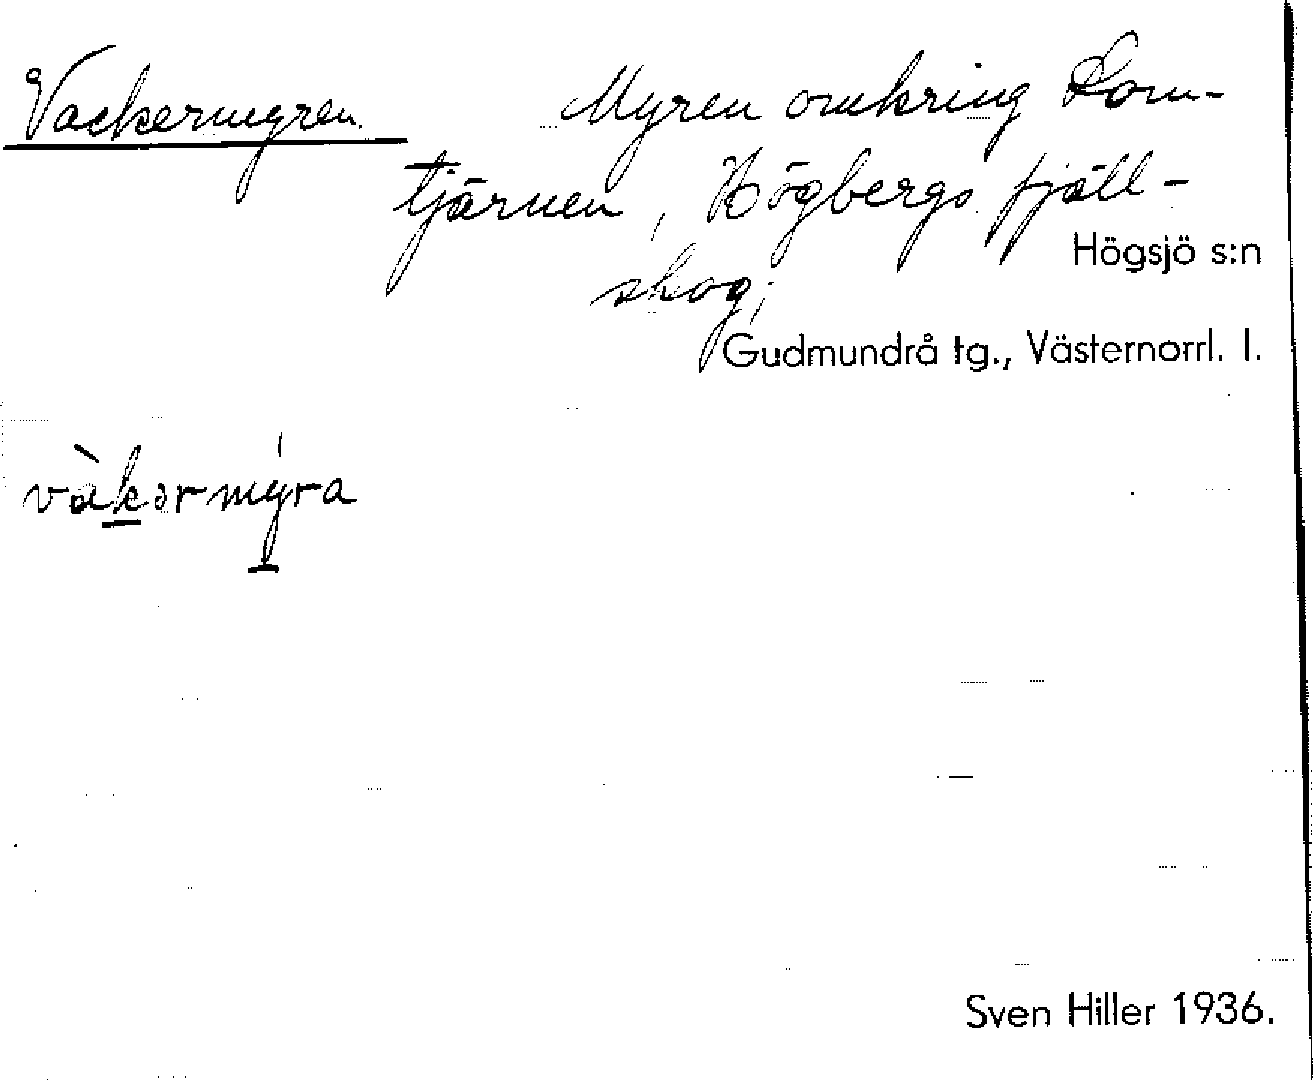 Vackermyren. Myren omkring Lom-
tjärnen, Högbergs fjäll-
Högsjö s:n
skog;
Gudmundrå tg., Västernorrl. l.
vàkərmýra
Sven Hiller 1936.